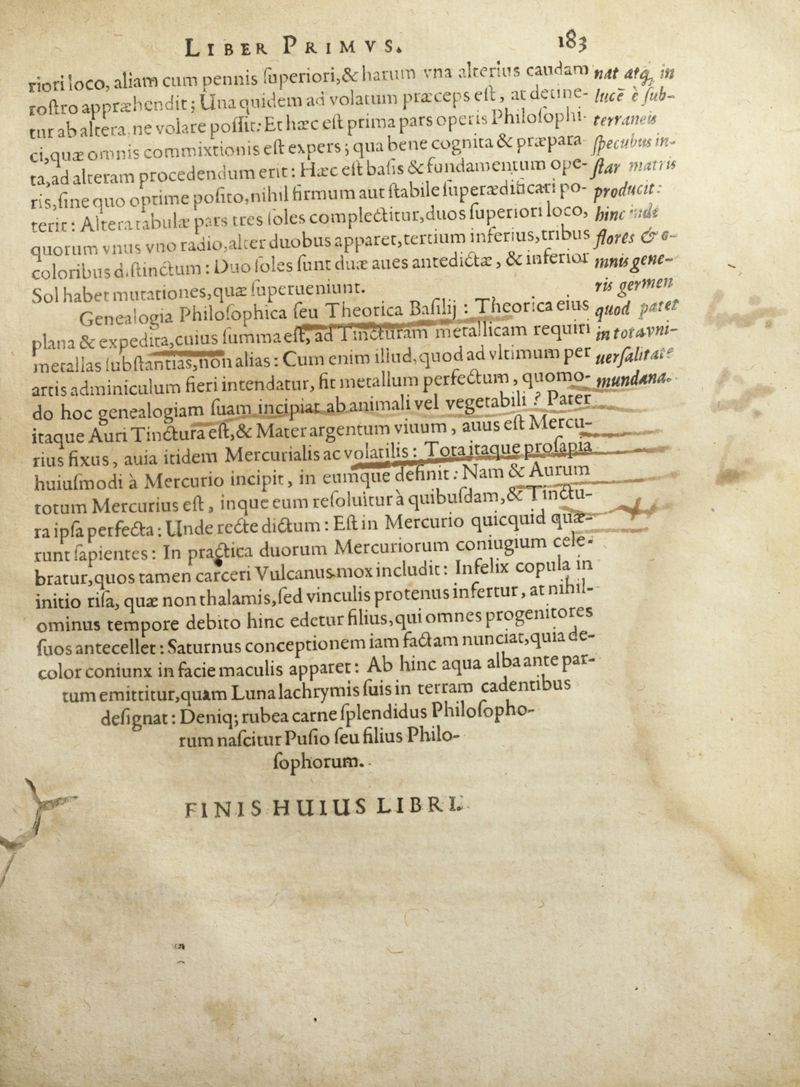 LIBER PRIMVS.
183
riori loco, aliam cum pennis ſuperiori,& harum vna alterius caudam
roſtro appræhendit; Una quidem ad volatum præceps eſt, at detine-
tur ab altera, ne volare poſſit: Et hæc eſt prima pars operis Philoſophi-
ci, quæ omnis commixtionis eſt expers; qua bene cognita & præpara
ta, ad alteram procedendum erit: Hæc eſt baſis & fundamentum ope-
ris, ſine quo optime poſito, nihil firmum aut ſtabile ſuperædificari po-
terit: Altera tabulæ pars tres ſoles complectitur, duos ſuperiori loco,
quorum vnus vno radio, alter duobus apparet, tertium inferius, tribus
coloribus diſtinctum: Duo ſoles ſunt duæ aues antedictæ, & inferior
Sol habet mutationes, quæ ſuperueniunt.
Genealogia Philoſophica ſeu Theorica Baſilij: Theorica eius
plana & expedita, cuius ſumma eſt, ad Tincturam metallicam requiri
metallas ſubſtantias, non alias: Cum enim illud, quod ad vltimum per
artis adminiculum fieri intendatur, ſit metallum perfectum, quomo-
do hoc genealogiam ſuam incipiat ab animali vel vegetabili? Pater
itaque Auri Tinctura eſt, & Mater argentum viuum, auus eſt Mercu-
rius fixus, auia itidem Mercurialis ac volatilis: Tota itaque proſapia
huiuſmodi à Mercurio incipit, in eumque definit: Nam & Aurum
totum Mercurius eſt, inque eum reſoluitur à quibuſdam, & Tinctu-
ra ipſa perfecta: Unde recte dictum: Eſt in Mercurio quicquid quæ-
runt ſapientes: In practica duorum Mercuriorum coniugium cele-
bratur, quos tamen carceri Vulcanus mox includit: Infelix copula in
initio riſa, quæ non thalamis, ſed vinculis protenus infertur, at nihil-
ominus tempore debito hinc edetur filius, qui omnes progenitores
ſuos antecellet: Saturnus conceptionem iam factam nunciat, quia de-
color coniunx in facie maculis apparet: Ab hinc aqua alba ante par-
tum emittitur, quam Luna lachrymis ſuis in terram cadentibus
deſignat: Deniq; rubea carne ſplendidus Philoſopho-
rum naſcitur Puſio ſeu filius Philo-
ſophorum.
nat atq, in
lucē e ſub-
terraneis
ſpecubus in-
ſtar matris
producit:
hinc
flores & o-
mnis gene-
ris germen
quod patet
in tot avni-
uerſalitate
mundana.
FINIS HUIUS LIBRI.